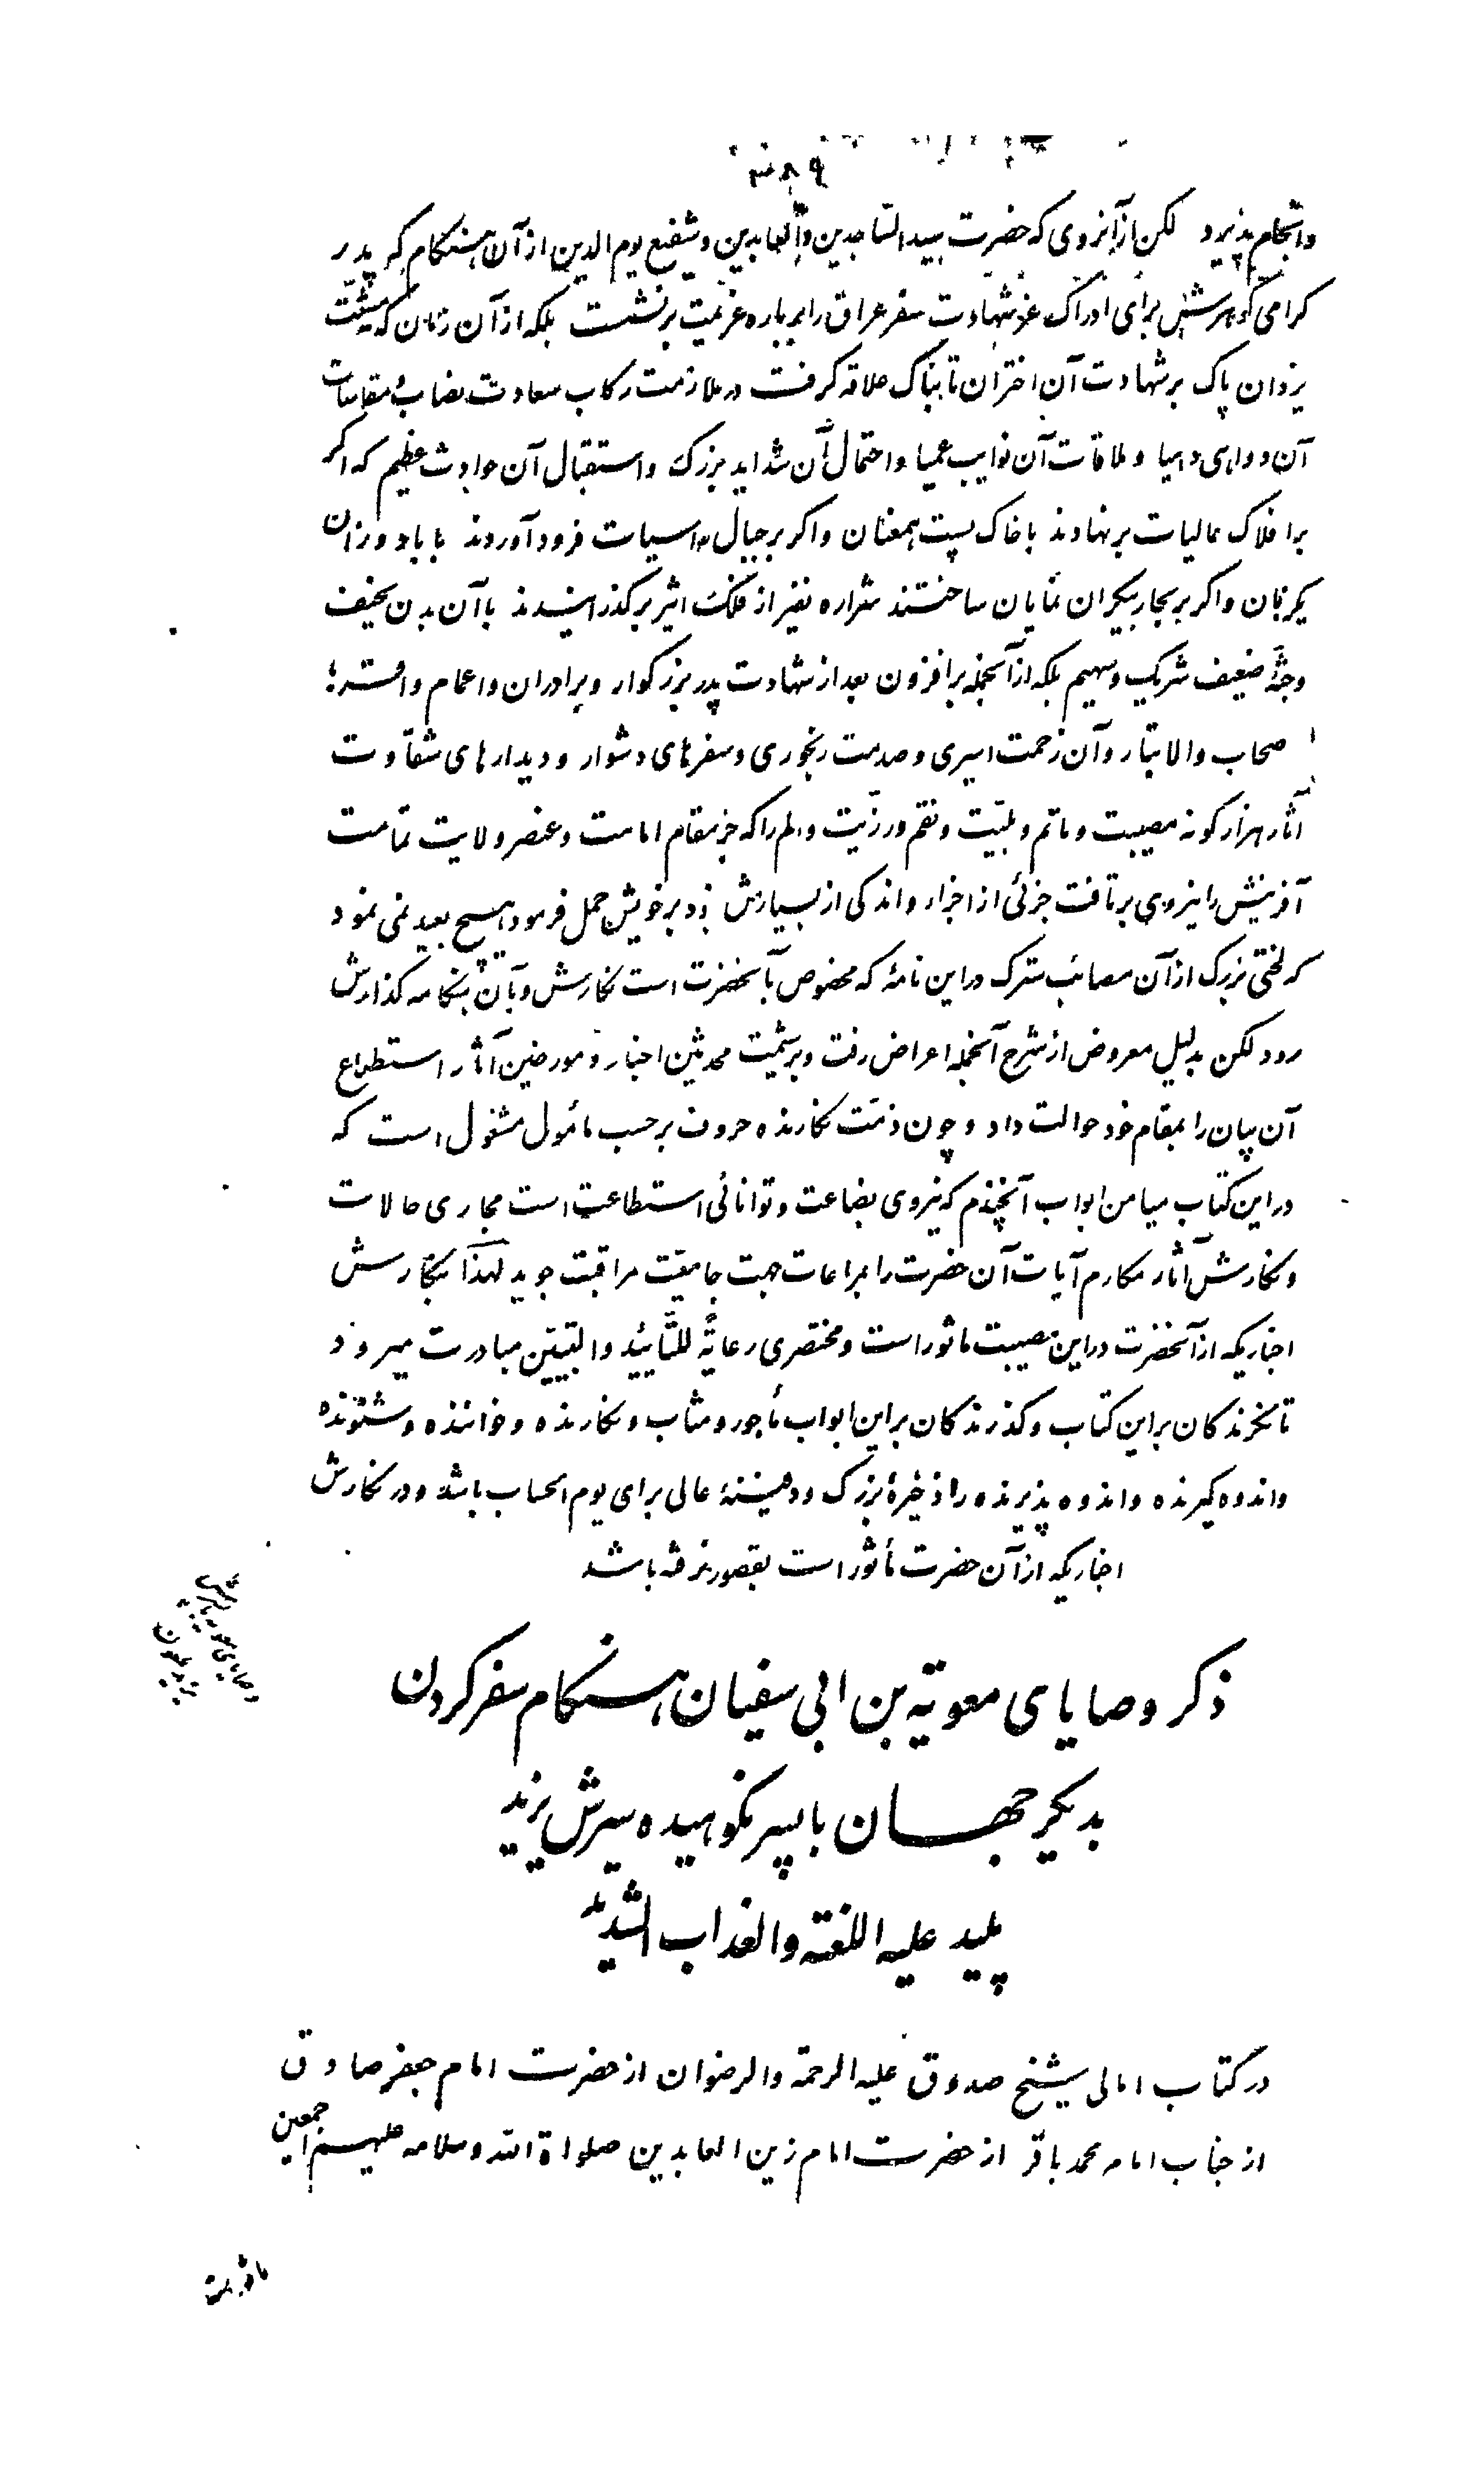 ۳۸۹
و انجام پذیرد لکن از آنروی که حضرت سید الساجدین و العابدین و شفیع یوم الدین از آن هنگام که پدر
کرامی کوهرش برای ادراک عز شهادت سفر عراق را بر باره عزیمت برنشست بلکه از آن زمان که مشیت
یزدان پاک بر شهادت آن اختران تابناک علاقه کرفت در ملازمت رکاب سعادت نصاب مقاسات
آن دواهی دهیا و ملاقات آن نوایب عمیا و احتمال آن شداید بزرک و استقبال آن حوادث عظیم که اکر
بر افلاک عالیات برنهادند با خاک پست همعنان و اکر بر جبال راسیات فرود آوردند با باد وزان
یکرنان و اکر بر بحار بیکران نمایان ساختند شراره نفیر از فلک اثیر برکذرانیدند با آن بدن نحیف
و جثه ضعیف شریک و سهیم بلکه از آنجمله بر افزون بعد از شهادت پدر بزرکوار و برادران و اعمام و
صحاب والا تبار و آن زحمت اسیری و صدمت رنجوری و سفرهای دشوار و دیدارهای شقاوت
آثار هزار کونه مصیبت و ماتم و بلیت و نقم و رزیت و الم را که جز مقام امامت و عنصر ولایت تمامت
آفرینش را نیروی برتافت جزئی از اجزاء و اندکی از بسیارش نبود بر خویش حمل فرمود هیچ بعید نمی نمود
که لختی بزرک از آن مصائب سترک در این نامه که مخصوص بآنحضرت است نکارش و بآن هنکامه کذارش
رود لکن بدلیل معروض از شرح آنجمله اعراض رفت و بر شیمت محدثین اخبار و مورخین آثار استطلاع
آن بیان را بمقام خود حوالت داد و چون ذمت نکارنده حروف بر حسب مأمول مشغول است که
در این کتاب میامن ابواب آنچندم که نیروی بضاعت و توانائی استطاعت است مجاری حالات
و نکارش آثار مکارم آیات آن حضرت را بمراعات جهت جامعیت مراقبت جوید لهذا بنکارش
اخباریکه از آنحضرت در این مصیبت ماثور است و مختصری رعایة للتأیید و التبیین مبادرت میرود
تا نکرندکان بر این کتاب و کذرندکان بر این ابواب مأجور و مثاب و نکارنده و خواننده و شنونده
و اندوه کیرنده و اندوه پذیرنده را ذخیره بزرک و دفینه عالی برای یوم الحساب باشد و در نکارش
اخباریکه از آن حضرت مأثور است بقصور نرفته باشد
وصایای معویه با پسرش
یزید ملعون
ذکر وصایای معویة بن ابی سفیان هنکام سفر کردن
بدیکر جهان با پسر نکوهیده سیرش یزید
پلید علیه اللعنة والعذاب الشدید
در کتاب امالی شیخ صدوق علیه الرحمة والرضوان از حضرت امام جعفر صادق
از جناب امام محمد باقر از حضرت امام زین العابدین صلواة الله وسلامه علیهم اجمعین